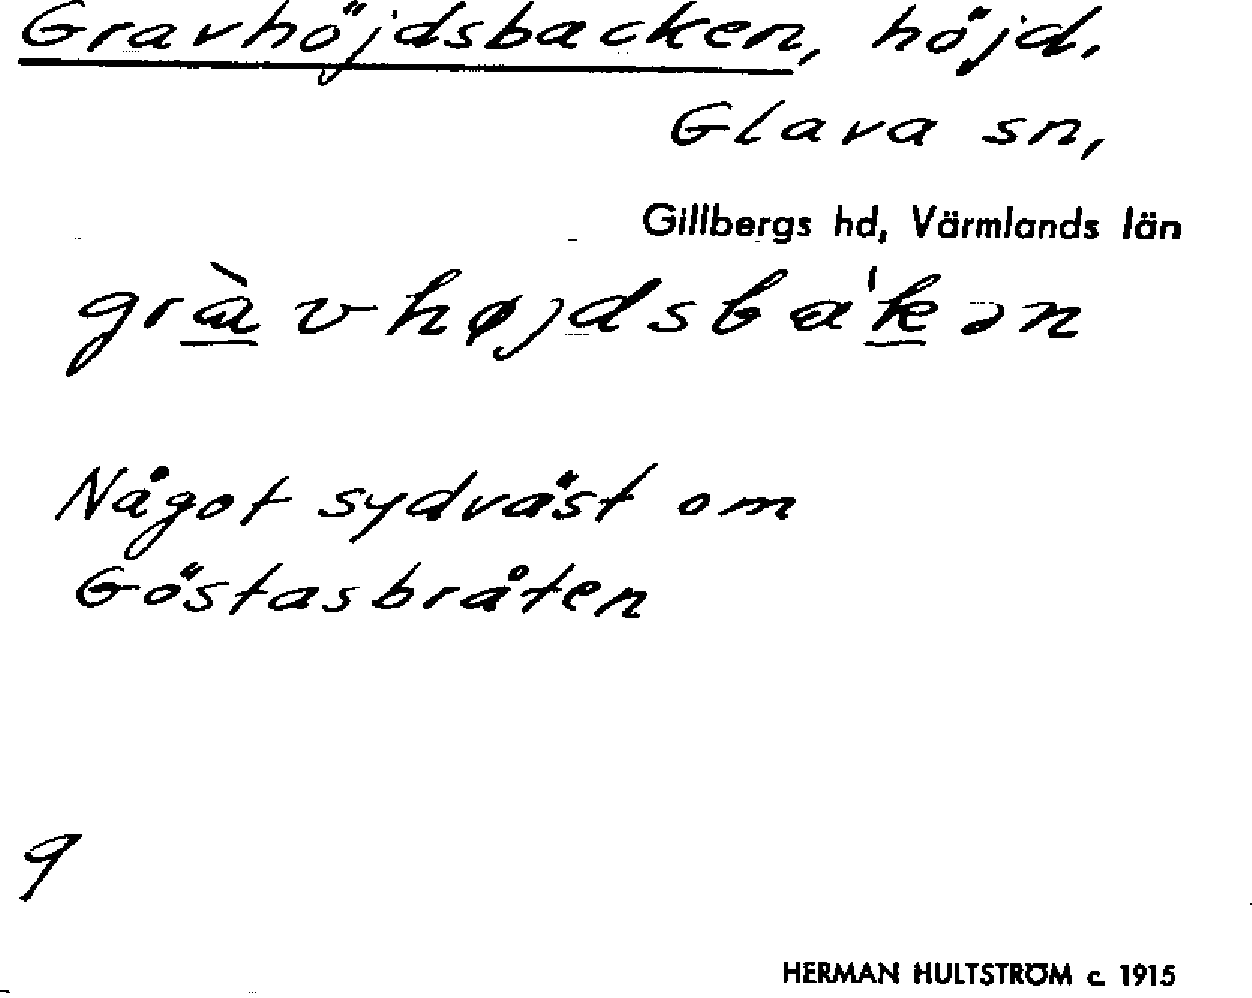 Gravhöjdsbacken, höjd,
Glava sn,
Gillbergs hd, Värmlands län
gràvhøjdsba'kən
Något sydväst om
Göstasbråten
9
HERMAN HULTSTRÖM c. 1915